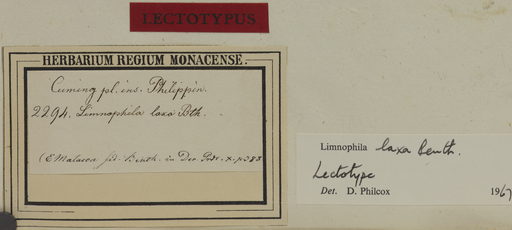 LECTOTYPUS
HERBARIUM REGIUM MONACENSE.
Cuming pl. ins. Philippin.
2294. Limnophila laxa Bth.
(E Malacca fid. Benth. in Dec. Prdr. X. p. 388
Limnophila laxa Benth.
Lectotype
Det. D. Philcox 1967